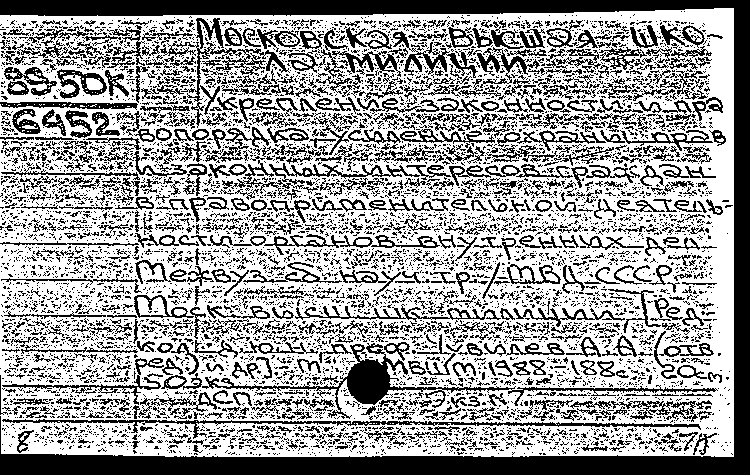 Московская высшая шко-
ла милиции.
89-50К
6452
Укрепление законности и пра
вопорядка, усиление охраны прав
и законных интересов граждан
в правоприменительной деятель-
ности органов внутренних дел:
Межвуз. сб. науч. тр. / МВД СССР,
Моск. высш. шк. милиции; [Ред-
кол.: д.ю.н. проф. Чувилев А.А. (отв.
ред.) и др.] - М. МВШМ, 1988. - 188с., 20см.
150экз.
ДСП Экз. N7.
8